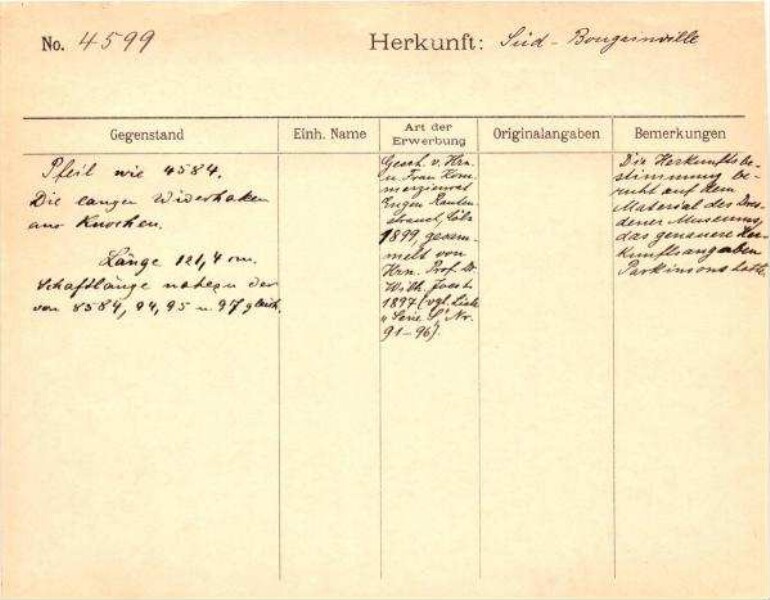 No. 4599
Herkunft: Süd-Bougainville
Gegenstand
Einh. Name
Art der
Erwerbung
Originalangaben
Bemerkungen
Pfeil wie 4584.
Die langen Widerhaken
aus Knochen.
Länge 121,4 cm.
Schaftlänge nahezu der
von 8584, 94, 95 u. 97 gleich.
Gesch. v. Hrn.
u. Frau Kom-
merzienrat
Eugen Rauten-
strauch, Köln
1899, gesam-
melt von
Hrn. Prof. Dr.
Wilh. Joest
1897 (vgl. Liste
"Serie S", Nr.
91-96).
Die Herkunftsbe-
stimmung be-
ruht auf dem
Material des Dres-
dener Museums,
das genauere Her-
kunftsangaben
Parkinsons hatte.